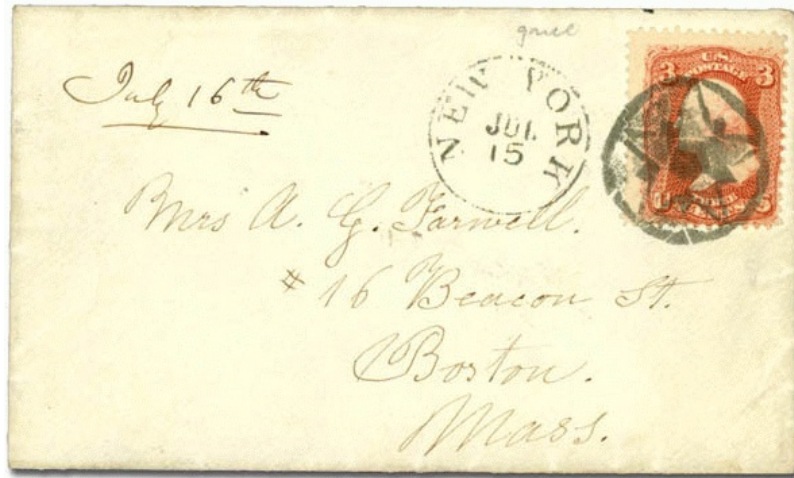 July 16th
NEW YORK
JUL
15
3 U.S. 3
POSTAGE
Mrs A. G. Farwell.
# 16 Beacon St.
Boston.
Mass.